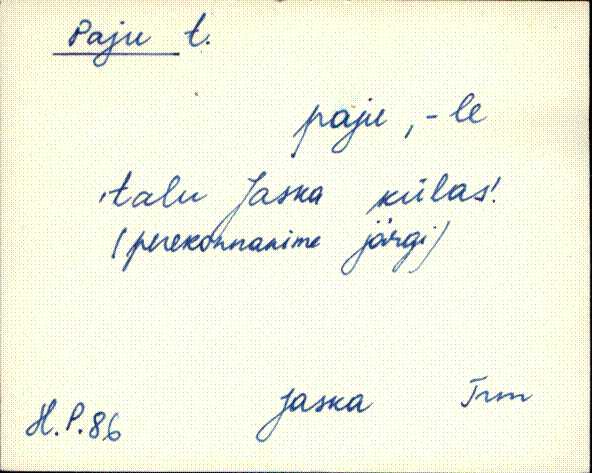 Paju t.
paju, -le
'talu Jaska külas!
(perekonnanime järgi)
Jaska Trm
H.P.86